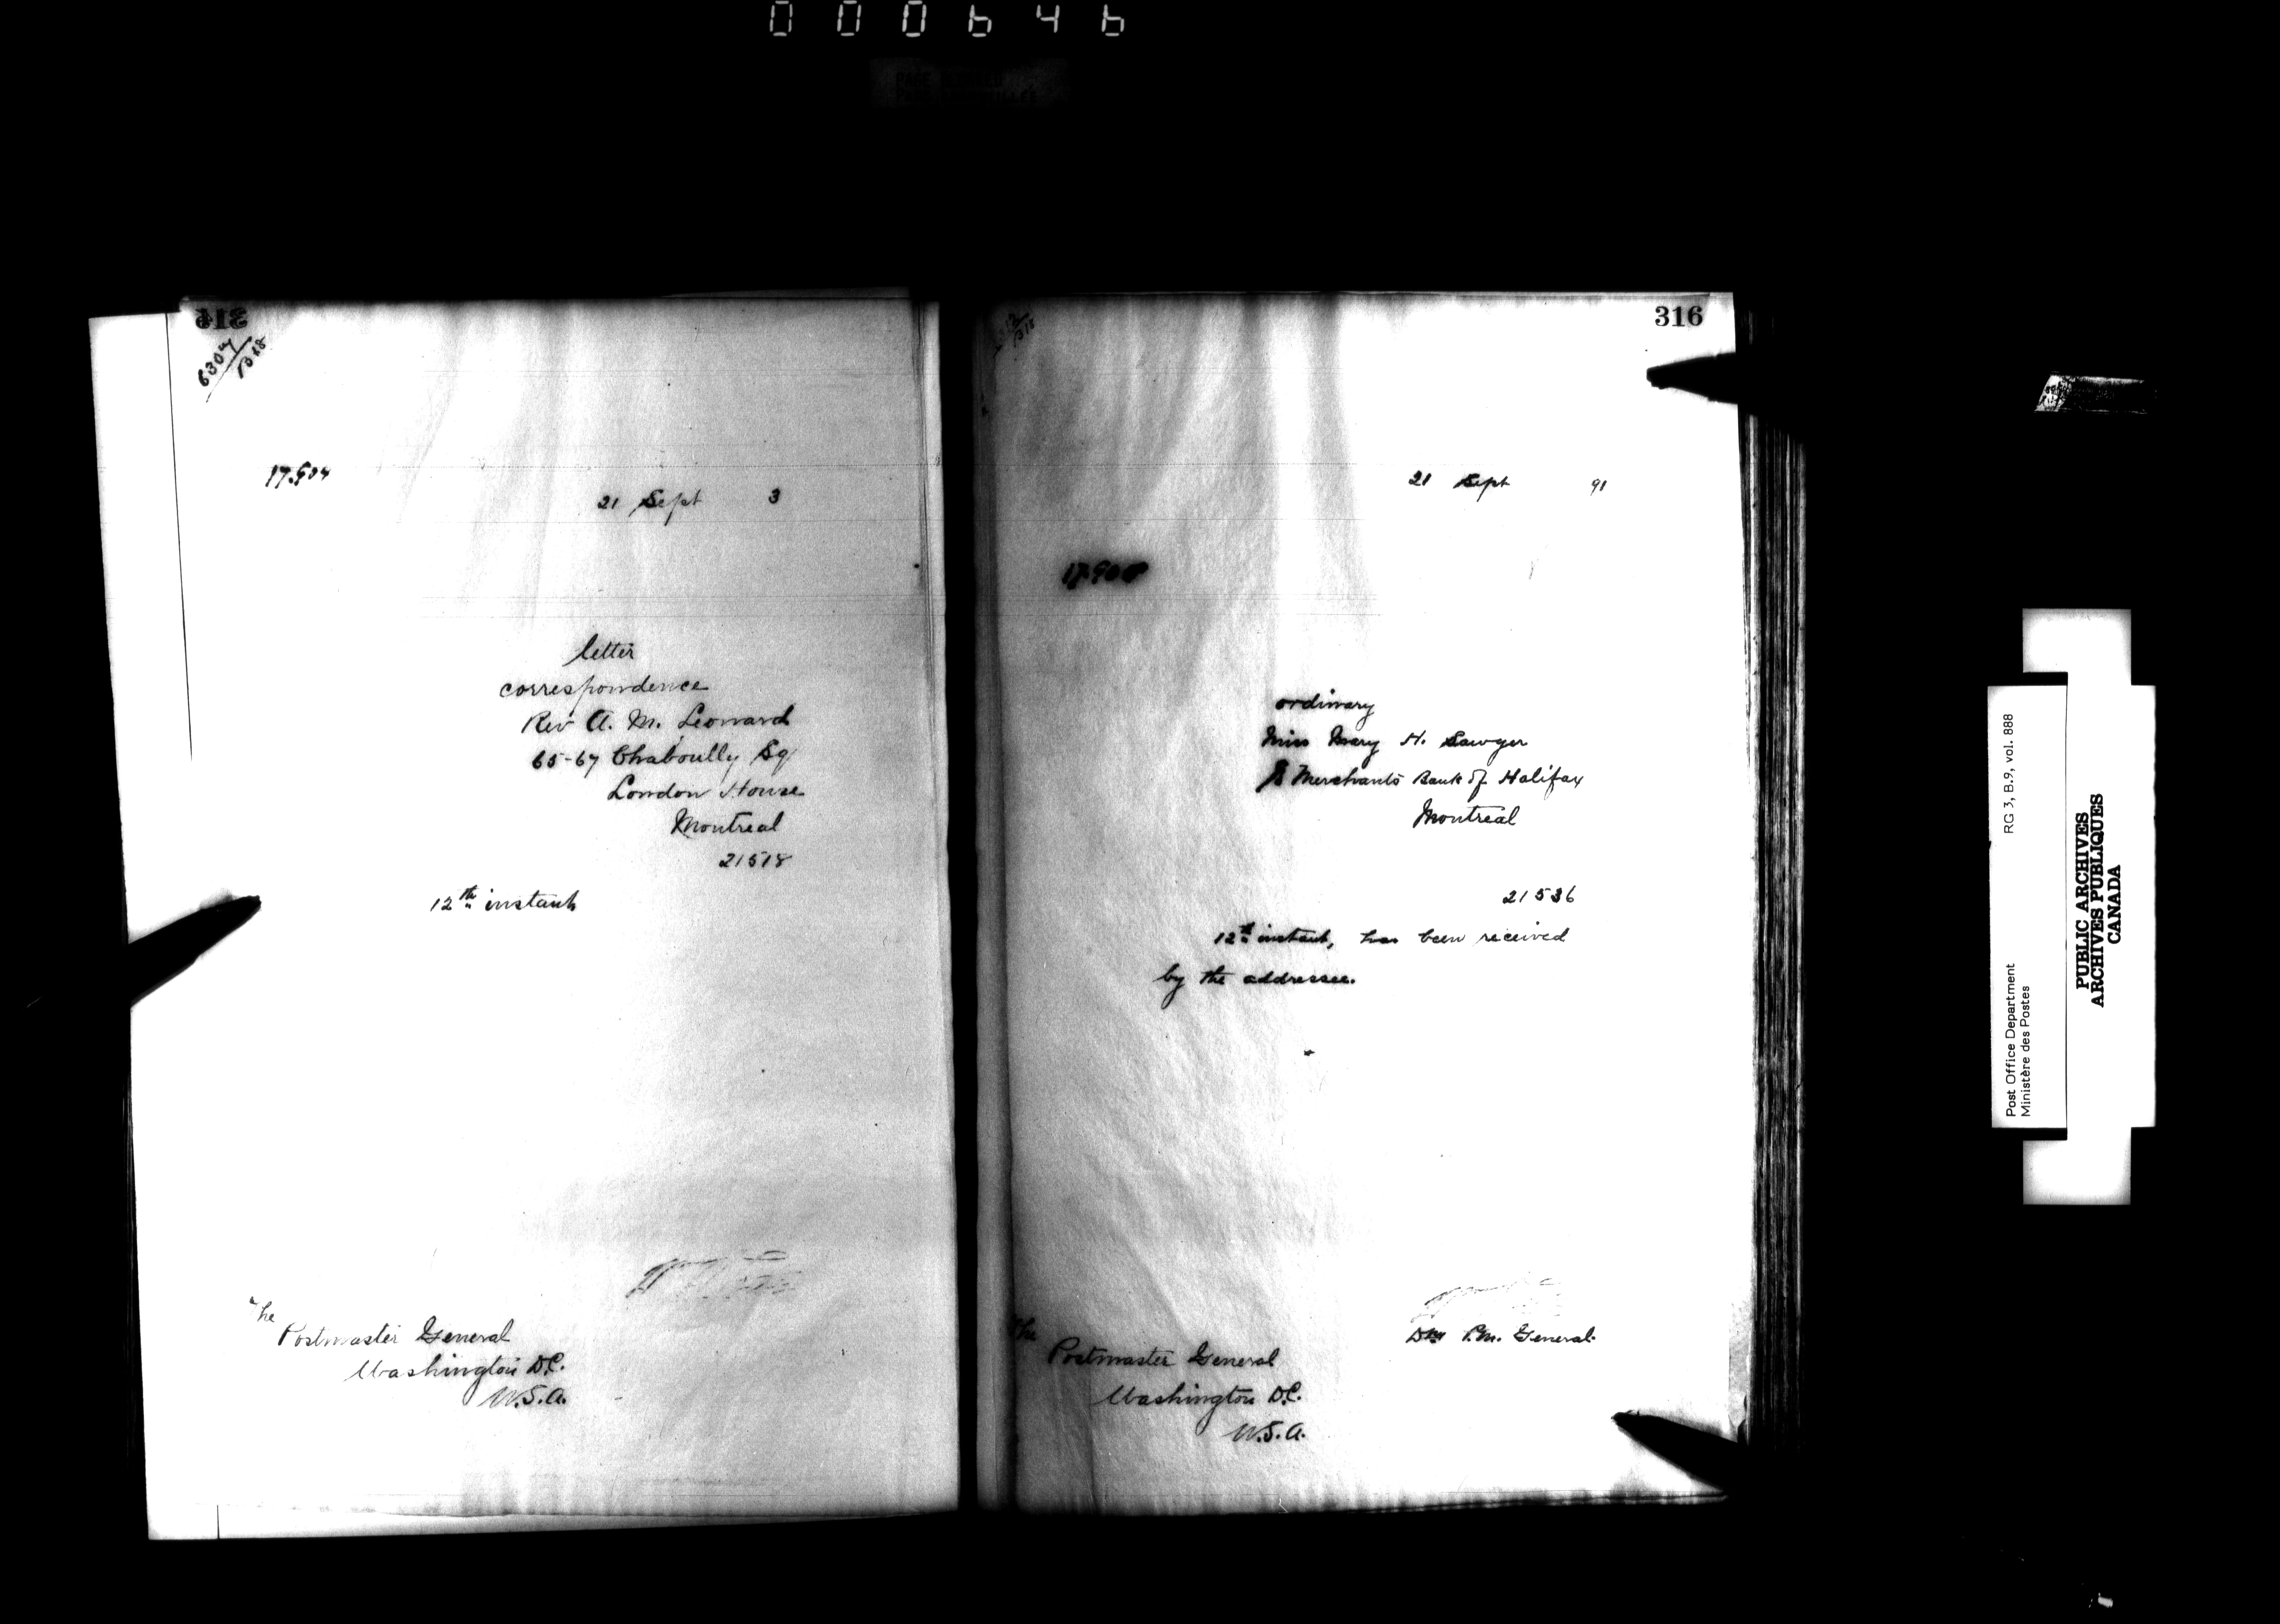 000646
6307/B18
17.904
21 Sept 3
letter
correspondence
Rev A. M. Leonard
65-67 Chaboully Sq
London House
Montreal
21518
12th instant
The
Postmaster General
Washington D.C.
U.S.A.
316
21 Sept 91
ordinary
Miss Mary H. Sawyer
Merchants Bank of Halifax
Montreal
21536
12th instant, has been received
by the addressee.
P.M. General.
The
Postmaster General
Washington D.C.
U.S.A.
Post Office Department RG 3, B.9, vol. 888
Ministère des Postes
PUBLIC ARCHIVES
ARCHIVES PUBLIQUES
CANADA